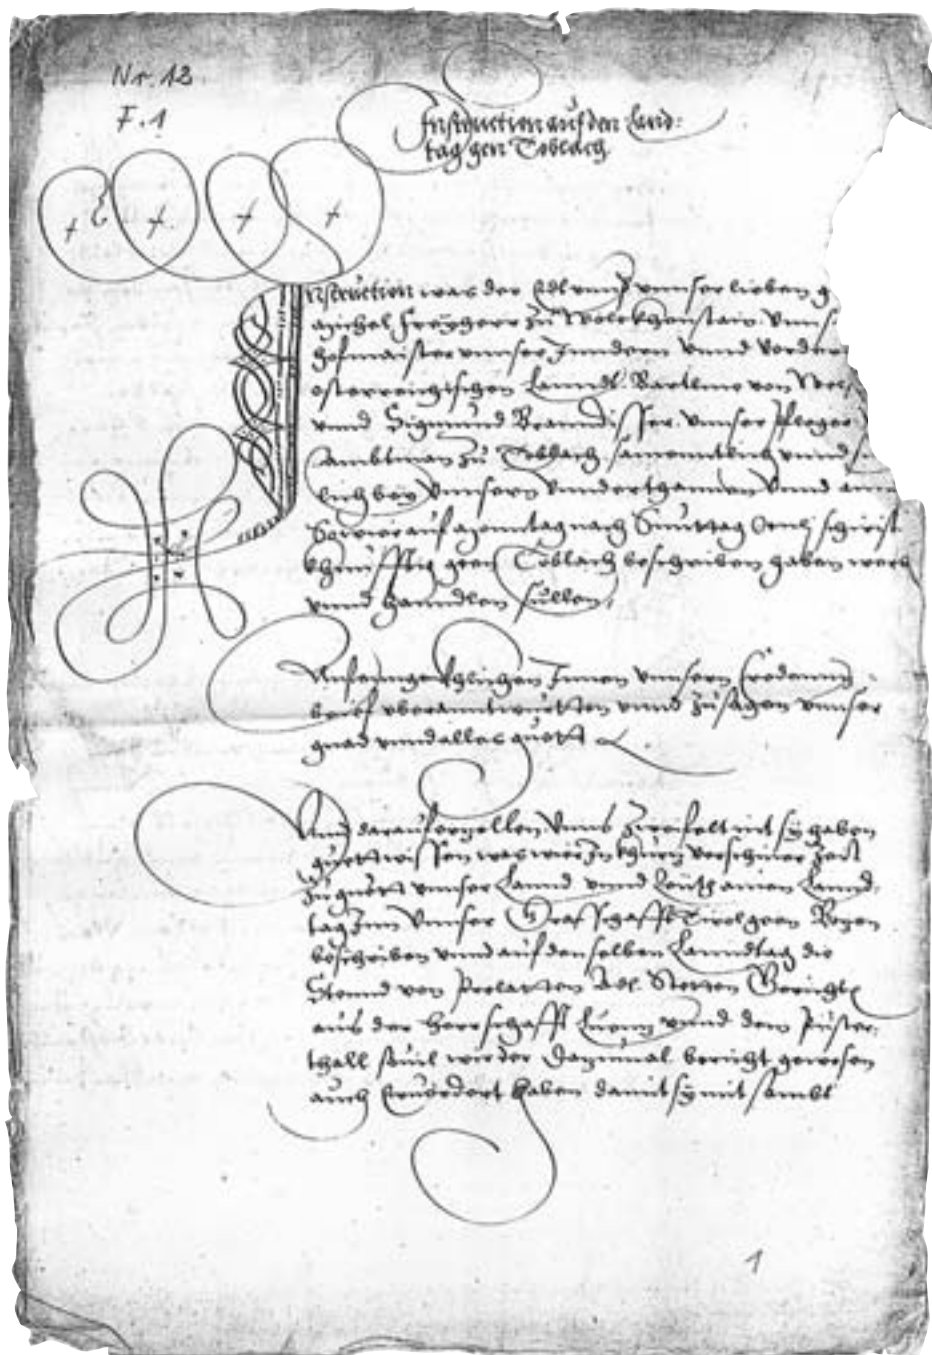 Nr. 12
F. 1
Instruction auf den Land:
tag gen Toblach
Instruction was der Edl unnd unnser lieben g
Michel Freyherr zu Wolckhenstain unns
hofmaister unnser Inndern unnd vordern
osterreichischen Lannd Bartlme von Wel
unnd Sigmund Branndisser unnser Phleger
Ambtman zu Toblach samenntlich unnd
lich bey unnsern unnderthannen unnd
So wir auf Monntag nach Sonntag schirist
khunfftig geen Toblach beschriben haben
unnd hanndlen sullen
Anfanngkhlichen Innen unnsern Credennz
brief uberanntwurtten unnd zusagen unnser
gnad unnd alles guett
Und darauf erzellen unns zweifelt nit sy haben
guett wissen was wir in khurz verschiner Zeit
zu guett unnser Lannd unnd Leuth ainen Lannd:
tag Inn unnser Grafschafft Tirol geen Bozen
beschriben unnd auf denselben Lanndtag die
Stennd von Prelatten Adl Stetten Gericht
aus der Herrschafft Luenz unnd dem Puster:
thall sovil wir der dazumal bericht gewesen
auch ervordert haben damit sy mit sambt
1